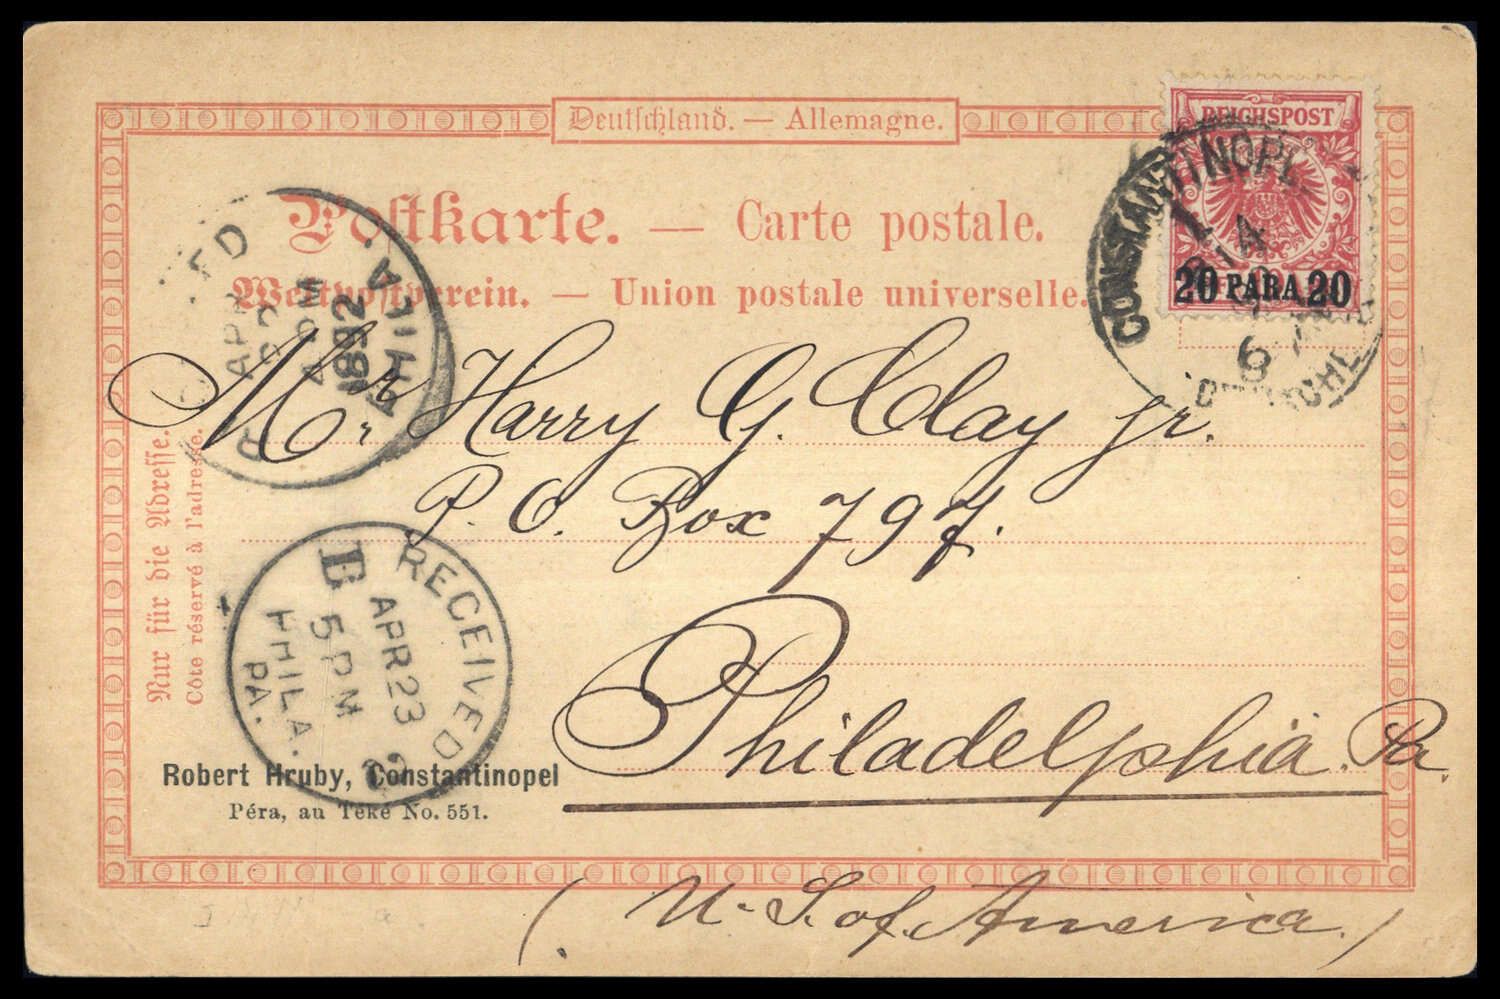 Deutschland. — Allemagne.
REICHSPOST
20 PARA 20
CONSTANTINOPEL
1
14
6
Postkarte. — Carte postale.
Weltpostverein. — Union postale universelle.
APR
4 PM
1892
PHILA.
Mr Harry G. Clay jr.
P. O. Box 797.
Philadelphia. Pa.
(U. S. of America.)
Nur für die Adresse.
Côté réservé à l'adresse.
RECEIVED
E
APR 23
5 PM
PHILA.
PA.
Robert Hruby, Constantinopel
Péra, au Téké No. 551.